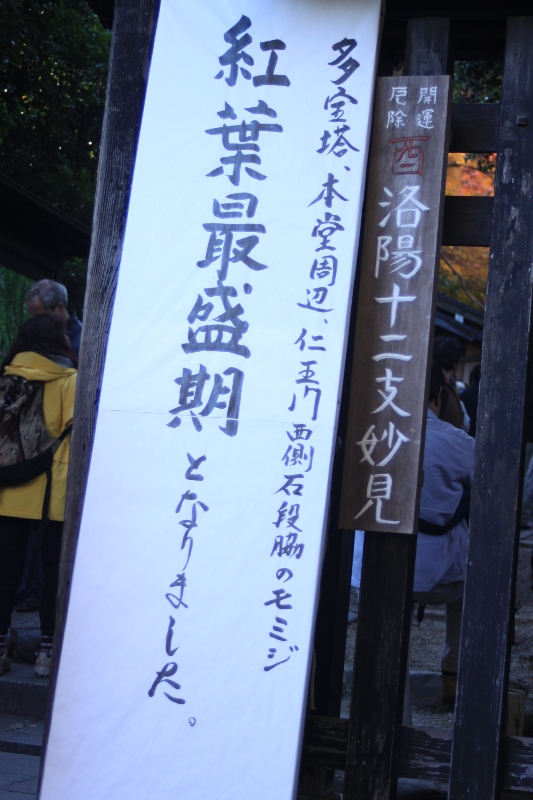 開運
厄除
酉
洛陽十二支妙見
多宝塔、本堂周辺、仁王门西側石段脇のモミジ
紅葉最盛期となりました。